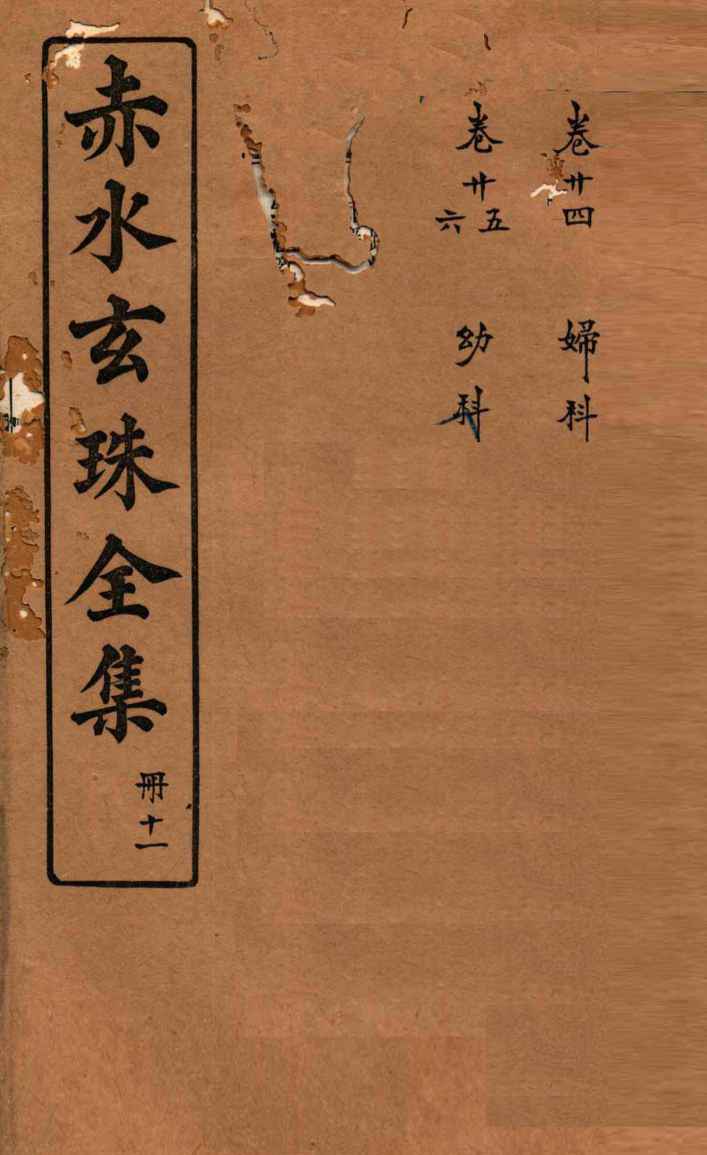 卷廿四 婦科
卷廿五六 幼科
赤水玄珠全集
冊十一